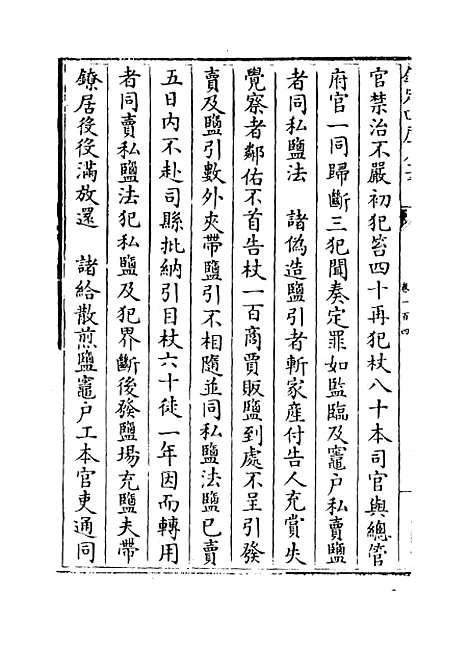 官禁治不嚴初犯笞四十再犯杖八十本司官與總管
府官一同歸斷三犯聞奏定罪如監臨及竈戶私賣鹽
者同私鹽法　諸偽造鹽引者斬家産付告人充賞失
覺察者鄰佑不首告杖一百商賈販鹽到處不呈引發
賣及鹽引數外夾帶鹽引不相隨並同私鹽法鹽已賣
五日内不赴司縣批納引目杖六十徒一年因而轉用
者同賣私鹽法犯私鹽及犯界斷後發鹽場充鹽夫帶
鐐居役役滿放還　諸給散煎鹽竈戶工本官吏通同
卷一百四